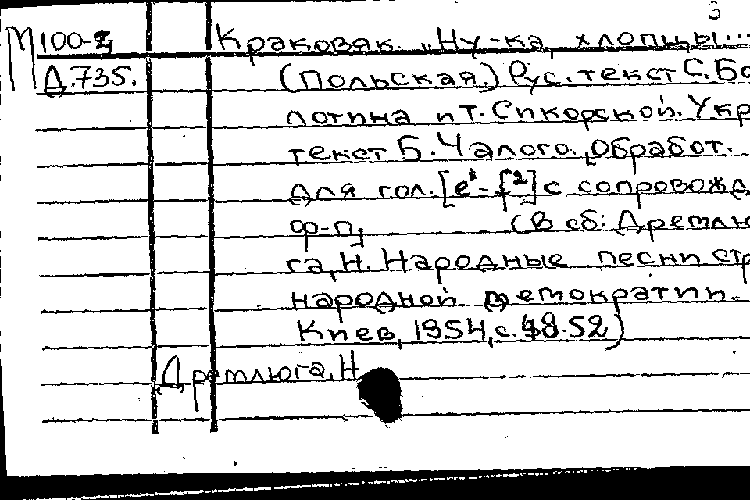 3
М 100-4 Краковяк. „Ну-ка, хлопцы...
Д.735. (Польская.) Рус. текст С. Бо
лотина и Т. Сикорской. Укр
текст Б. Чалого. Обработ.
для гол. [e¹-f²] с сопровожд
ф-п. (В сб: Дремлю
га, Н. Народные песни стр
народной демократии.
Киев, 1954, с. 48-52)
Дремлюга, Н